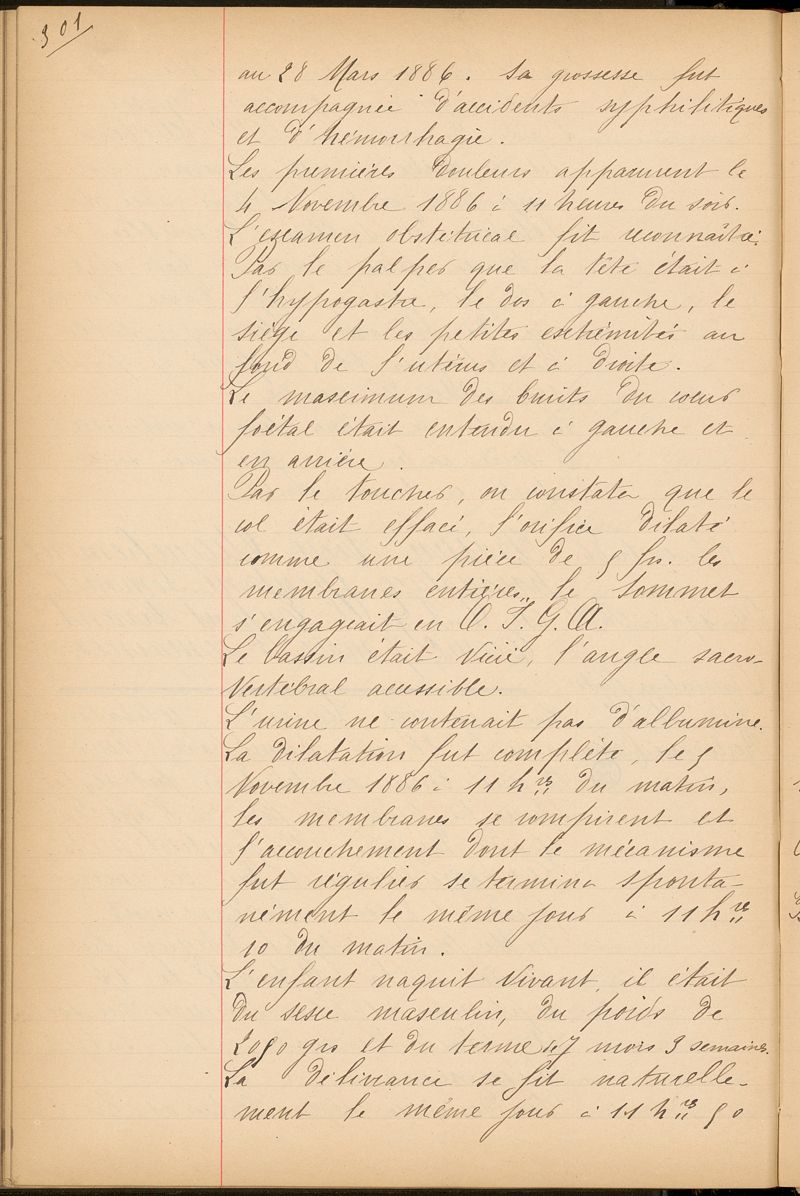 301
au 28 Mars 1886. Sa grossesse fut
accompagnée d'accidents syphilitiques
et d'hémorrhagie.
Les premières douleurs apparurent le
4 Novembre 1886 à 11 heures du soir.
L'examen obstétrical fit reconnaître:
Par le palper que la tête était à
l'hypogastre, le dos à gauche, le
siège et les petites extrémités au
fond de l'utérus et à droite.
Le maximum des bruits du cœur
foétal était entendu à gauche et
en arrière.
Par le toucher, on constata que le
col était effacé, l'orifice dilaté
comme une pièce de 5 frs. les
membranes entières, le sommet
s'engageait en O. I. G. A.
Le bassin était vicié, l'angle sacro-
vertébral accessible.
L'urine ne contenait pas d'albumine.
La dilatation fut complète, le 5
Novembre 1886 à 11 hres du matin,
les membranes se rompirent et
l'accouchement dont le mécanisme
fut régulier se termina sponta-
nément le même jour à 11 hres
10 du matin.
L'enfant naquit vivant, il était
du sexe masculin, du poids de
2050 grs et du terme de 7 mois 3 semaines.
La délivrance se fit naturelle-
ment le même jour à 11 hres 50